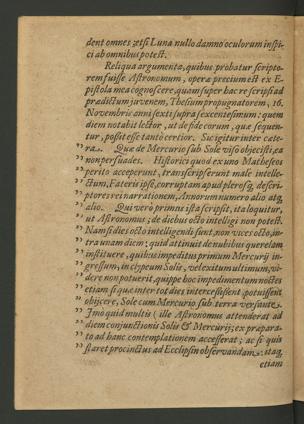 dent omnes: etsi Luna nullo damno oculorum inspi-
ci ab omnibus potest.
Reliqua argumenta, quibus probatur scripto-
rem fuisse Astronomum, operæ precium est ex E-
pistola mea cognoscere, quam super hac re scripsi ad
prædictum juvenem, Thesium propugnatorem, 16.
Novembris anni sexti supra sexcentesimum: quem
diem notabit lector, ut deside eorum, quæ sequun-
tur, possit esse tanto certior. Sic igitur inter cete-
,, ra. Quæ de Mercurio sub Sole viso objecisti, ea
,, non persuades. Historici quod ex uno Matheseos
,, perito acceperunt, transcripserunt male intelle-
,, ctum. Fateris ipse, corruptam apud plerosq; descri-
,, ptores rei narrationem, Annorum numero alio atq;
,, alio. Qui vero primus ista scripsit, ita loquitur,
,, ut Astronomus; de diebus octo intelligi non potest.
,, Nam si dies octo intelligendi sunt, non vices octo, in-
,, tra unam diem; quid attinuit de nubibus querelam
,, instituere, quibus impeditus primum Mercurij in-
,, gressum, in clypeum Solis, vel exitum ultimum, vi-
,, dere non potuerit, quippe hoc impedimentum noctes
,, etiam siquæ inter tot dies intercessissent, potuissent
,, objicere, Sole cum Mercurio sub terra versante.
,, Imo quid multis (ille Astronomus attenderat ad
,, diem conjunctionis Solis & Mercurij; ex præpara-
,, to ad hanc contemplationem accesserat; ac si quis
,, staret procinctus ad Eclipsin observandam: itaq;
etiam